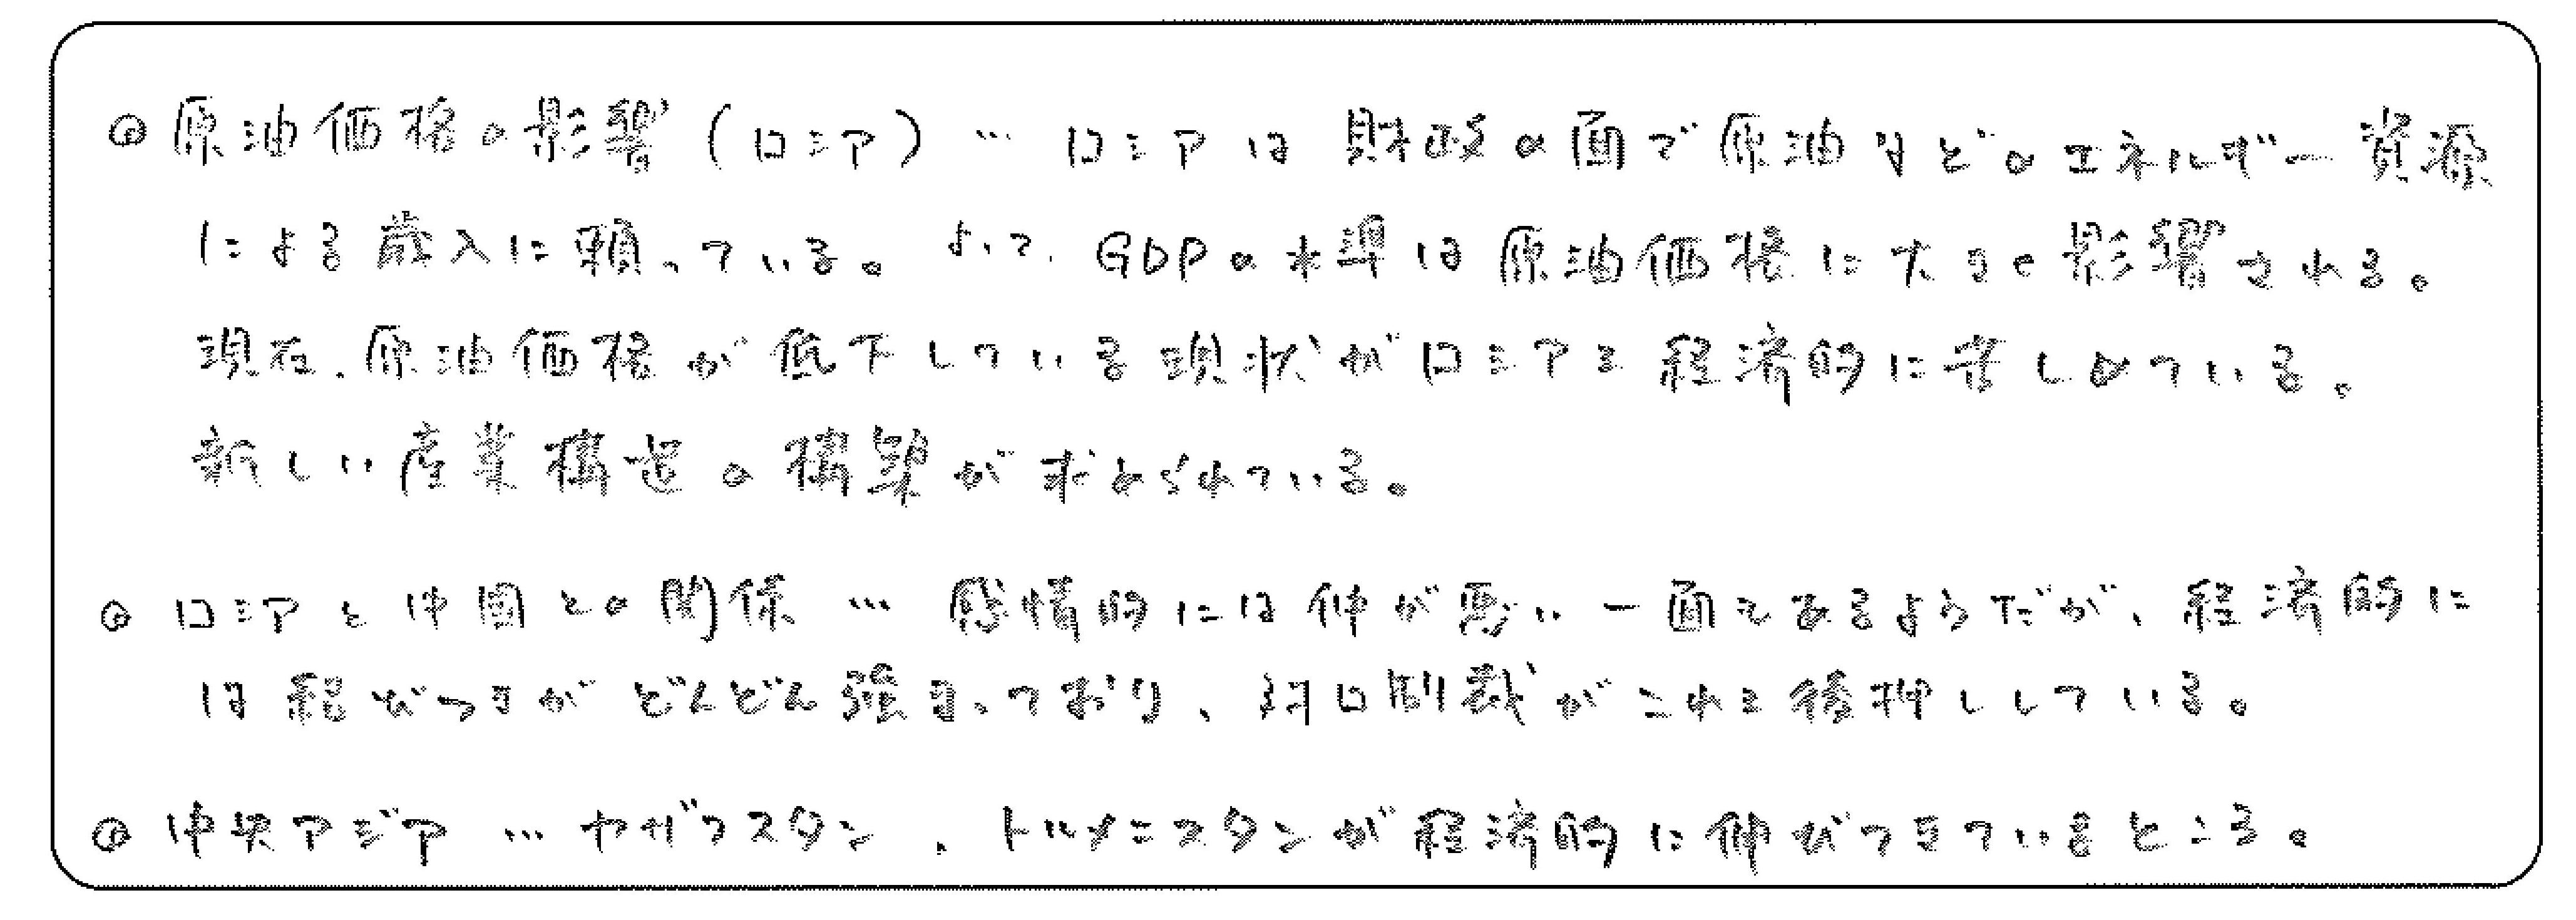 ◎ 原油価格の影響(ロシア)… ロシアは財政の面で原油などのエネルギー資源
による歳入に頼っている。よって、GDPの水準は原油価格に大きく影響される。
現在、原油価格が低下している現状がロシアを経済的に苦しめている。
新しい産業構造の構築が求められている。
◎ ロシアと中国との関係 … 感情的には仲が悪い一面もあるようだが、経済的に
は結びつきがどんどん強まっており、対ロ制裁がこれを後押ししている。
◎ 中央アジア … カザフスタン、トルメニスタンが経済的に伸びつきているところ。